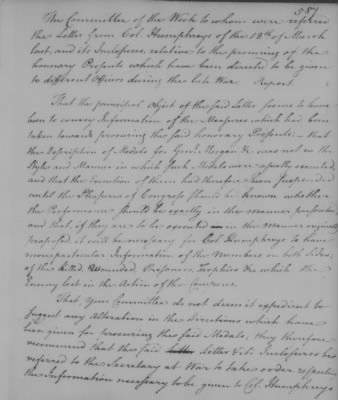 587
The Committee of the Week to whom were referred
the Letter from Col. Humphreys of the 18th of March
last, and its Inclosures, relative to the procuring of the
honorary Presents which have been directed to be given
to different Officers during the late War Report
That the principal Object of the said Letter seems to have
been to convey Information of the Measures which had been
taken towards procuring the said honorary Presents — that
the Description of Medals for Genl. Morgan &c was not in the
Style and Manner in which such Medals were usually executed,
and that the Execution of them had therefore been suspended
until the Pleasure of Congress should be known whether
the Performance should be exactly in the manner prescribed
and that, if they are to be executed in the manner originally
proposed, it will be necessary for Col. Humphreys to have
more particular Information of the Numbers on both sides;
of the killed, Wounded, Prisoners, Trophies &c which the
Enemy lost in the Action of the Cowpens.
That, your Committee do not deem it expedient to
suggest any Alteration in the Directions which have
been given for procuring the said Medals, they therefore
recommend that the said Letter & its Inclosures be
referred to the Secretary at War to take order respecting
the Information necessary to be given to Col. Humphreys